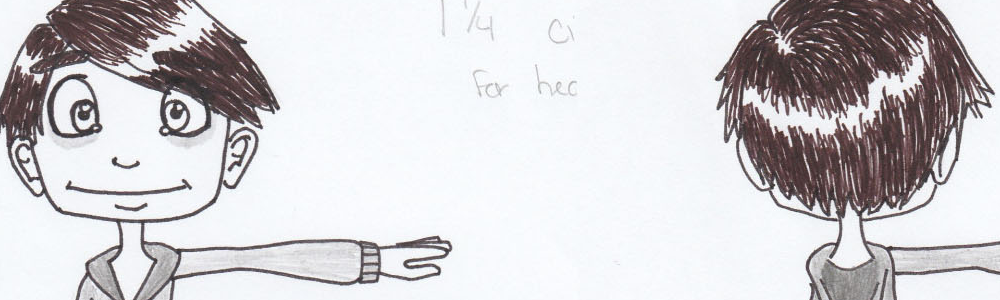 1 1/4 Ci
For hec